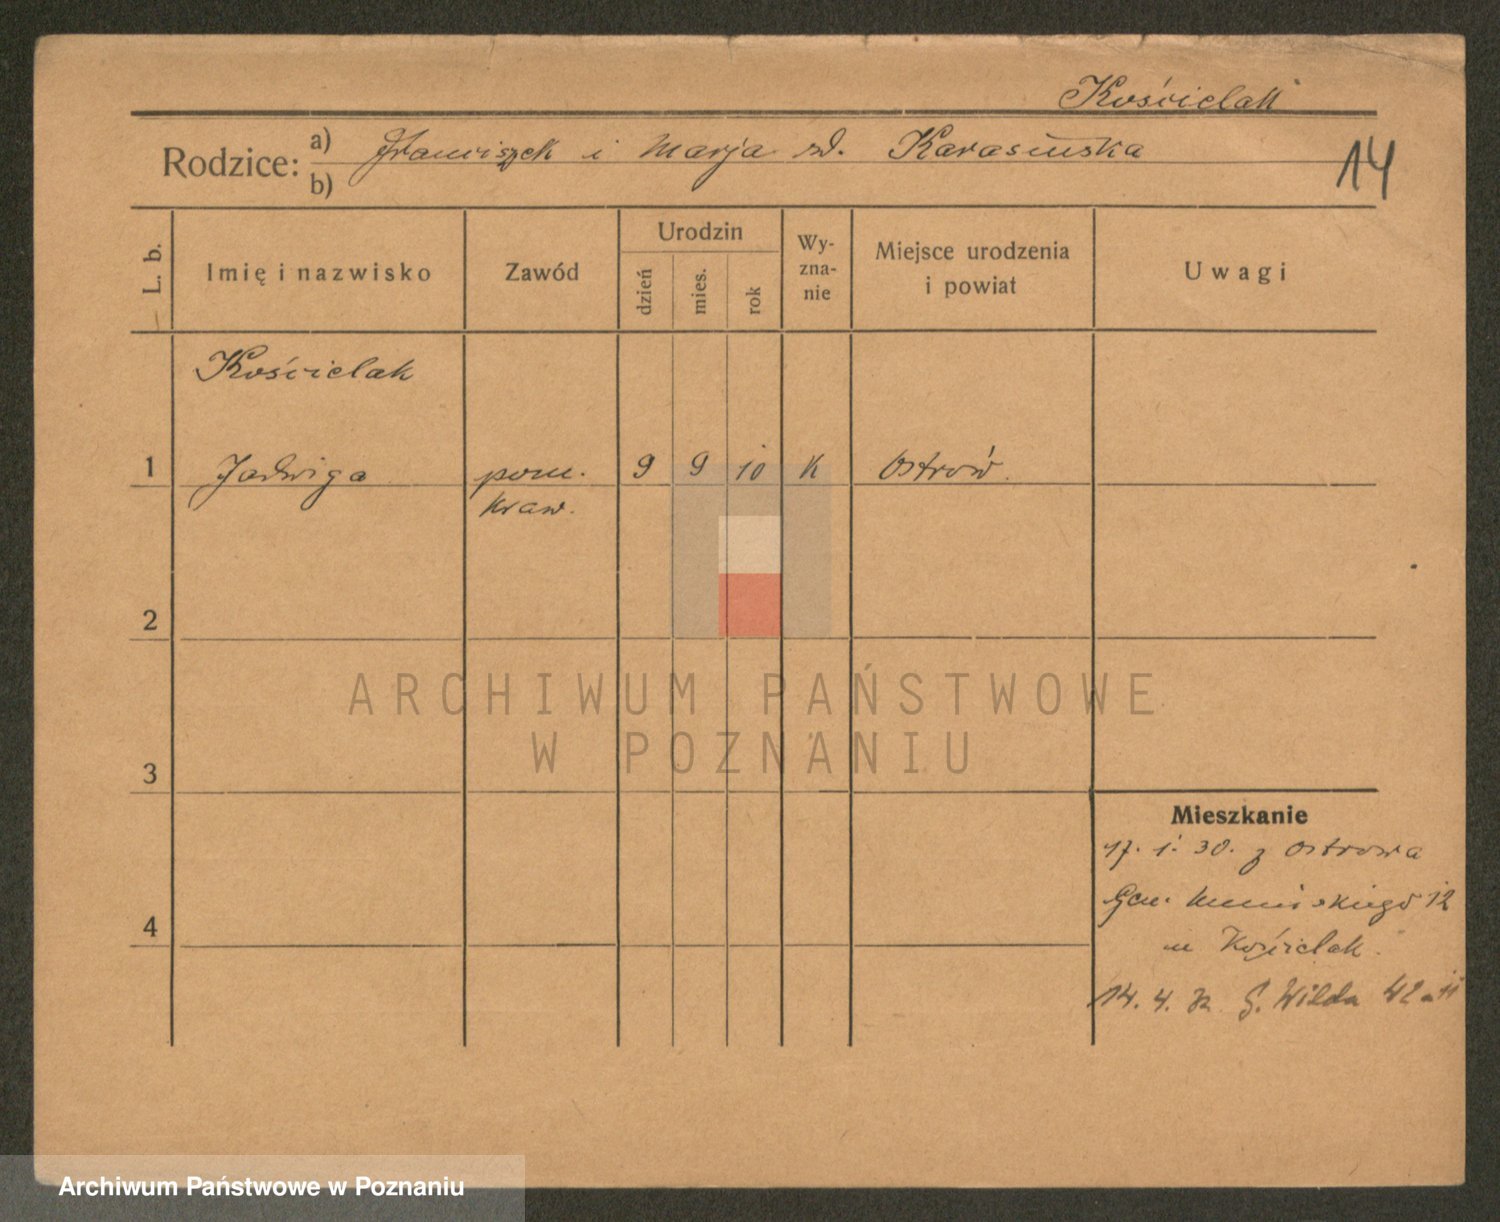 Kościelak
Rodzice: a) Franciszek i Marja rd. Karasińska
b)
14
L. b.
Imię i nazwisko
Zawód
Urodzin
dzień
mies.
rok
Wy-
zna-
nie
Miejsce urodzenia
i powiat
Uwagi
Kościelak
1 Jadwiga pom. 9 9 10 K Ostrów
kraw.
2
ARCHIWUM PAŃSTWOWE
W POZNANIU
3
Mieszkanie
17. 1. 30. z Ostrowa
Gen. 12
4
u Kościelak
14. 4. 32 G. Wilda 42
Archiwum Państwowe w Poznaniu